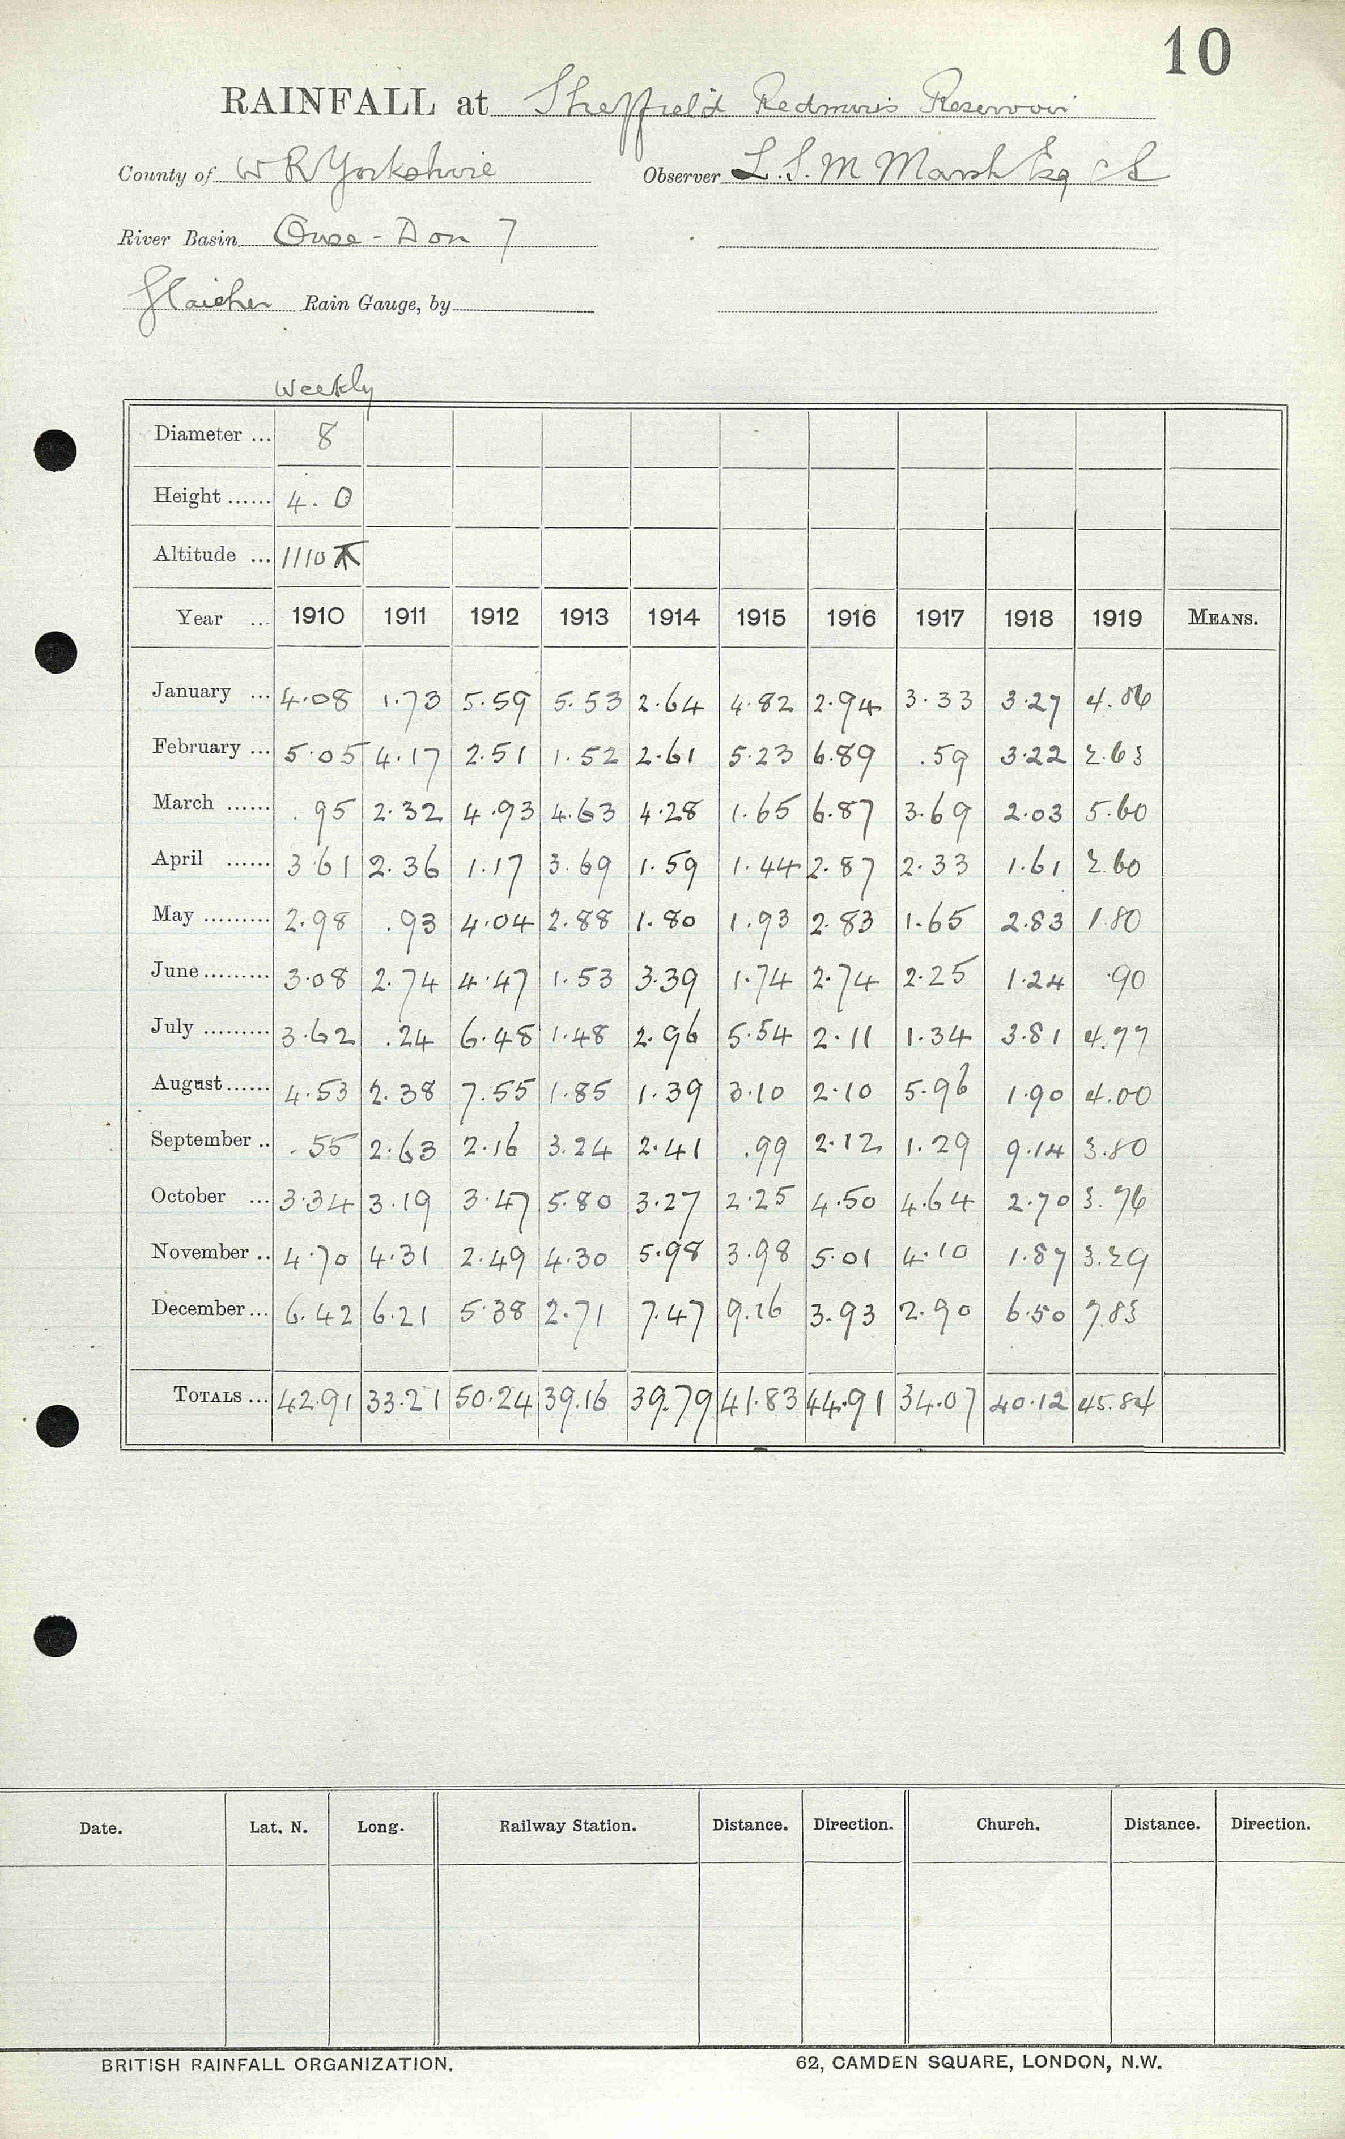 10
RAINFALL at Sheffield Redmires Reservoir
County of W R Yorkshire Observer L.S.M Marsh Esq
River Basin Ouse - Don 7
Rain Gauge, by
Weekly
Diameter ... 8
Height ...... 4. 0
Altitude ... 1110
Year ... 1910 1911 1912 1913 1914 1915 1916 1917 1918 1919 MEANS.
January ... 4.08 1.73 5.59 5.53 2.64 4.82 2.94 3.33 3.27 4.86
February ... 5.05 4.17 2.51 1.52 2.61 5.23 6.89 .59 3.22 2.63
March ...... .95 2.32 4.93 4.63 4.28 1.65 6.87 3.69 2.03 5.60
April ...... 3.61 2.36 1.17 3.69 1.59 1.44 2.87 2.33 1.61 2.60
May ......... 2.98 .93 4.04 2.88 1.80 1.93 2.83 1.65 2.83 1.80
June ......... 3.08 2.74 4.47 1.53 3.39 1.74 2.74 2.25 1.24 .90
July ......... 3.62 .24 6.48 1.48 2.96 5.54 2.11 1.34 3.81 4.77
August ...... 4.53 2.38 7.55 1.85 1.39 3.10 2.10 5.96 1.90 4.00
September .. .55 2.63 2.16 3.24 2.41 .99 2.12 1.29 9.14 3.80
October ... 3.34 3.19 3.47 5.80 3.27 2.25 4.50 4.64 2.70 3.76
November .. 4.70 4.31 2.49 4.30 5.98 3.98 5.01 4.10 1.87 3.29
December ... 6.42 6.21 5.38 2.71 7.47 9.16 3.93 2.90 6.50 7.83
TOTALS ... 42.91 33.21 50.24 39.16 39.79 41.83 44.91 34.07 40.12 45.84
Date. Lat. N. Long. Railway Station. Distance. Direction. Church. Distance. Direction.
BRITISH RAINFALL ORGANIZATION. 62, CAMDEN SQUARE, LONDON, N.W.